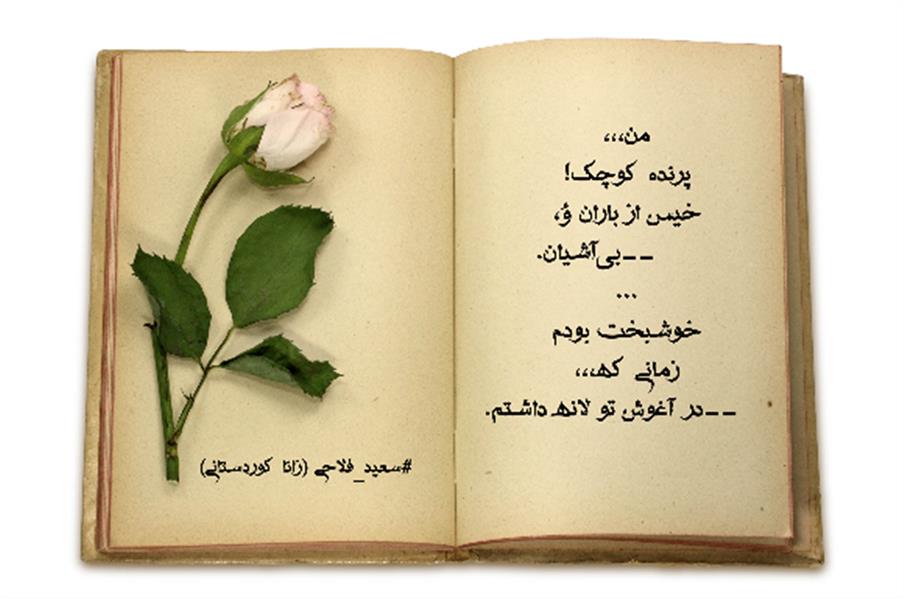 من،،،
پرنده کوچک!
خیس از باران وُ،
--بی‌آشیان.
...
خوشبخت بودم
زمانی که،،،
--در آغوش تو لانه داشتم.
#سعید_فلاحی (زانا کوردستانی)